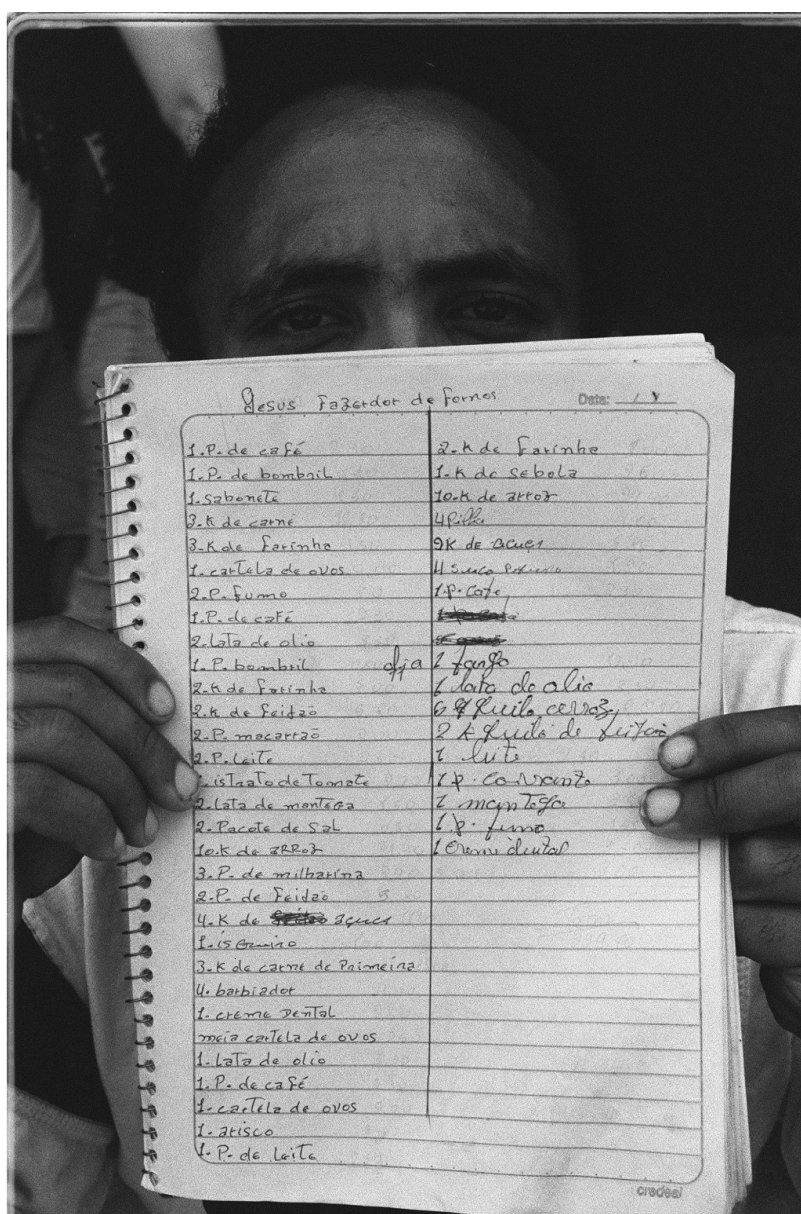 Jesus Fazerdor de Fornos
Data: / /
1.P. de café
1.P. de bombril
1.sabonete
3.K de carne
3.K de farinha
1.cartela de ovos
2.P. fumo
1.P. de café
2.lata de olio
1.P. bombril
2.K de farinha
2.K de feijão
2.P. macarrão
2.P. Leite
1.istrato de Tomate
2.lata de mantega
2.Pacote de Sal
10.K de arroz
3.P. de milharina
2.P. de Feijão
4.K de açucr
1.isqueiro
3.K de carne de Primeira
4.barbiador
1.creme Dental
meia cartela de ovos
1.lata de olio
1.P. de café
1.cartela de ovos
1.arisco
1.P. de Leite
2.K de farinha
1.K de sebola
10.K de arroz
4 Pilha
9K de
4 suco
1.P. cafe
1
1 lata de olio
6 quilo
2 quilo de feijão
1 leite
1 p.
1 mantega
1 p. fumo
1 Creme dental
credeal